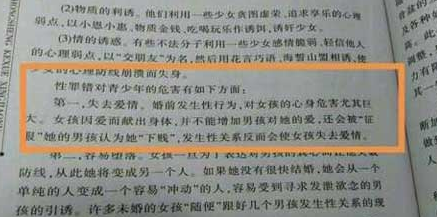 (2)物质的利诱。他们利用一些少女贪图虚荣,追求享乐的心理
弱点,以小恩小惠,物质金钱,吃喝玩乐作诱饵,诱奸少女。
(3)情的诱惑。有些不法分子利用一些少女感情脆弱,轻信他人
的心理弱点,以“交朋友”为名,然后用花言巧语,海誓山盟相诱,使
少女的心理防线崩溃而失身。
性罪错对青少年的危害有如下方面:
第一,失去爱情。婚前发生性行为,对女孩的心身危害尤其巨
大。女孩因爱而献出身体,并不能增加男孩对她的爱,还会被“征
服”她的男孩认为她“下贱”,发生性关系反而会使女孩失去爱情。
第二,容易堕落。女孩一旦为了表达对男孩的真心而
防线,从此她将变成另一个人。如果她没有很快结婚,她会从一个
单纯的人变成一个容易“冲动”的人,容易受到寻求发泄欲念的男
孩的引诱。许多未婚的女孩“随便”跟好几个男孩发生性关系的现